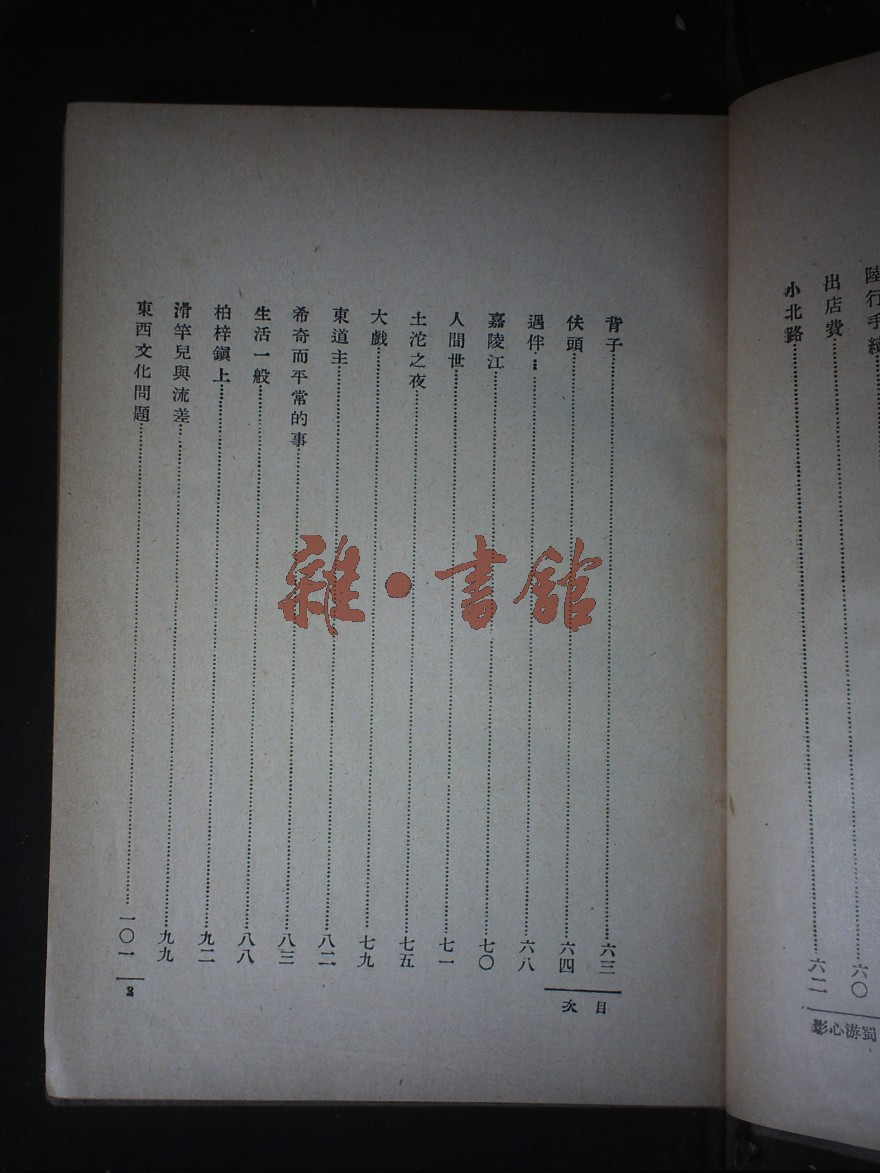 陸行手續
六〇
出店費
六二
小北路
蜀游心影
背子 六三
伕頭 六四
遇伴 六八
嘉陵江 七〇
人間世 七一
土沱之夜 七五
大戲 七九
東道主 八二
希奇而平常的事 八三
生活一般 八八
柏梓鎮上 九二
滑竿兒與流差 九九
東西文化問題 一〇一
目次
2
雜·書館